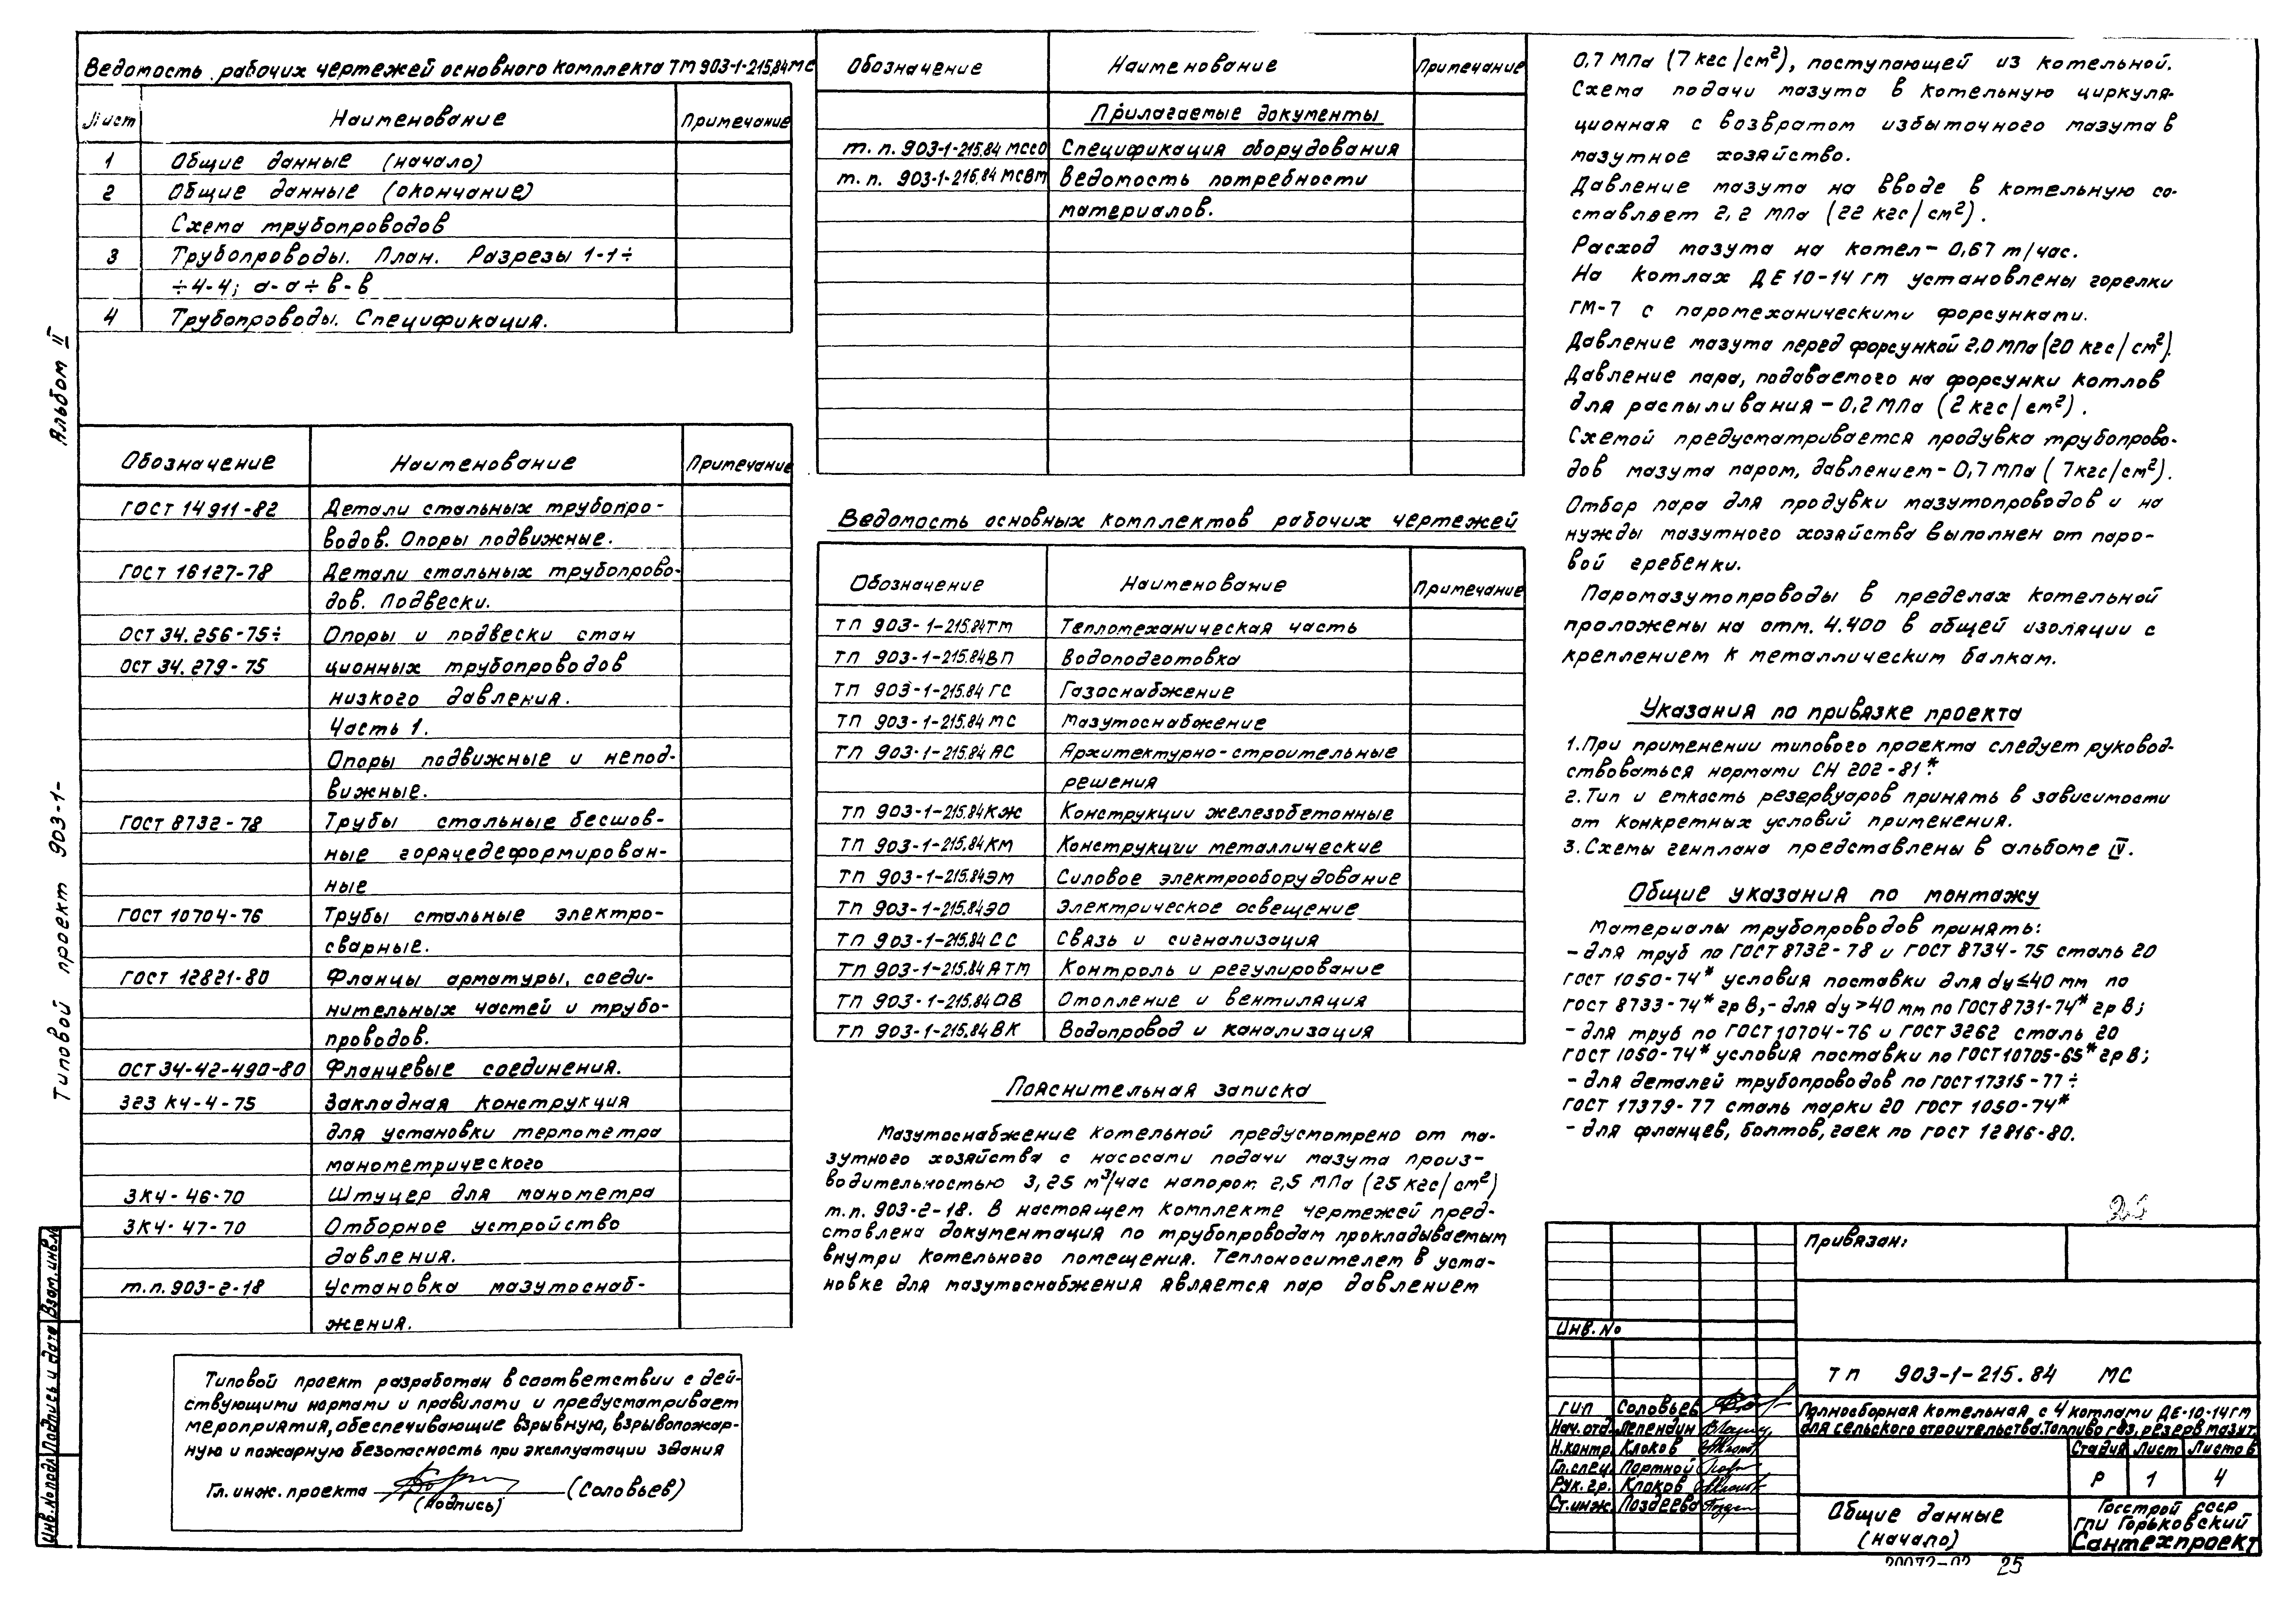 Альбом II
Типовой проект 903-1-
Инв.№подл. Подпись и дата Взам.инв.№
Ведомость рабочих чертежей основного комплекта ТМ 903-1-215.84 МС
Лист Наименование Примечание
1 Общие данные (начало)
2 Общие данные (окончание)
Схема трубопроводов
3 Трубопроводы. План. Разрезы 1-1÷
÷4-4; а-а÷в-в
4 Трубопроводы. Спецификация.
Обозначение Наименование Примечание
ГОСТ 14911-82 Детали стальных трубопро-
водов. Опоры подвижные.
ГОСТ 16127-78 Детали стальных трубопрово-
дов. Подвески.
ОСТ 34.256-75÷ Опоры и подвески стан
ОСТ 34.279-75 ционных трубопроводов
низкого давления.
Часть 1.
Опоры подвижные и непод-
вижные.
ГОСТ 8732-78 Трубы стальные бесшов-
ные горячедеформирован-
ные
ГОСТ 10704-76 Трубы стальные электро-
сварные.
ГОСТ 12821-80 Фланцы арматуры, соеди-
нительных частей и трубо-
проводов.
ОСТ 34-42-490-80 Фланцевые соединения.
3гз К4-4-75 Закладная конструкция
для установки термометра
манометрического
ЗК4-46-70 Штуцер для манометра
ЗК4-47-70 Отборное устройство
давления.
т.п. 903-2-18 Установка мазутоснаб-
жения.
Типовой проект разработан в соответствии с дей-
ствующими нормами и правилами и предусматривает
мероприятия, обеспечивающие взрывную, взрывопожар-
ную и пожарную безопасность при эксплуатации здания
Гл. инж. проекта (Соловьев)
(подпись)
Обозначение Наименование Примечание
Прилагаемые документы
т.п. 903-1-215.84 МССО Спецификация оборудования
т.п. 903-1-215.84 МСВМ Ведомость потребности
материалов.
Ведомость основных комплектов рабочих чертежей
Обозначение Наименование Примечание
ТП 903-1-215.84 ТМ Тепломеханическая часть
ТП 903-1-215.84 ВП Водоподготовка
ТП 903-1-215.84 ГС Газоснабжение
ТП 903-1-215.84 МС Мазутоснабжение
ТП 903-1-215.84 АС Архитектурно-строительные
решения
ТП 903-1-215.84 КЖ Конструкции железобетонные
ТП 903-1-215.84 КМ Конструкции металлические
ТП 903-1-215.84 ЭМ Силовое электрооборудование
ТП 903-1-215.84 ЭО Электрическое освещение
ТП 903-1-215.84 СС Связь и сигнализация
ТП 903-1-215.84 АТМ Контроль и регулирование
ТП 903-1-215.84 ОВ Отопление и вентиляция
ТП 903-1-215.84 ВК Водопровод и канализация
Пояснительная записка
Мазутоснабжение котельной предусмотрено от ма-
зутного хозяйства с насосами подачи мазута произ-
водительностью 3,25 м³/час напором 2,5 МПа (25 кгс/см²)
т.п. 903-2-18. В настоящем комплекте чертежей пред-
ставлена документация по трубопроводам прокладываемым
внутри котельного помещения. Теплоносителем в уста-
новке для мазутоснабжения является пар давлением
0,7 МПа (7 кгс/см²), поступающей из котельной.
Схема подачи мазута в котельную циркуля-
ционная с возвратом избыточного мазута в
мазутное хозяйство.
Давление мазута на вводе в котельную со-
ставляет 2,2 МПа (22 кгс/см²).
Расход мазута на котел - 0,67 т/час.
На котлах ДЕ 10-14 гм установлены горелки
ГМ-7 с паромеханическими форсунками.
Давление мазута перед форсункой 2,0 МПа (20 кгс/см²).
Давление пара, подаваемого на форсунки котлов
для распыливания - 0,2 МПа (2 кгс/см²).
Схемой предусматривается продувка трубопрово-
дов мазута паром, давлением - 0,7 МПа (7 кгс/см²).
Отбор пара для продувки мазутопроводов и на
нужды мазутного хозяйства выполнен от паро-
вой гребенки.
Паромазутопроводы в пределах котельной
проложены на отм. 4.400 в общей изоляции с
креплением к металлическим балкам.
Указания по привязке проекта
1. При применении типового проекта следует руковод-
ствоваться нормами СН 202-81*.
2. Тип и емкость резервуаров принять в зависимости
от конкретных условий применения.
3. Схемы генплана представлены в альбоме IV.
Общие указания по монтажу
Материалы трубопроводов принять:
- для труб по ГОСТ 8732-78 и ГОСТ 8734-75 сталь 20
ГОСТ 1050-74* условия поставки для dу≤40 мм по
ГОСТ 8733-74* гр В,- для dу>40 мм по ГОСТ 8731-74* гр В;
- для труб по ГОСТ 10704-76 и ГОСТ 3262 сталь 20
ГОСТ 1050-74* условия поставки по ГОСТ 10705-65* гр В;
- для деталей трубопроводов по ГОСТ 17315-77÷
ГОСТ 17379-77 сталь марки 20 ГОСТ 1050-74*
- для фланцев, болтов, гаек по ГОСТ 12816-80.
Привязан:
Инв. №
ТП 903-1-215.84 МС
ГИП Соловьев
Нач. отд. Лепендин
Н.контр. Клоков
Гл. спец. Портной
Рук. гр. Клоков
Ст. инж. Поздеева
Полносборная котельная с 4 котлами ДЕ-10-14 ГМ
для сельского строительства. Топливо газ, резерв мазут.
Стадия Лист Листов
Р 1 4
Общие данные
(начало)
Госстрой СССР
ГПИ Горьковский
Сантехпроект
20072-02 25